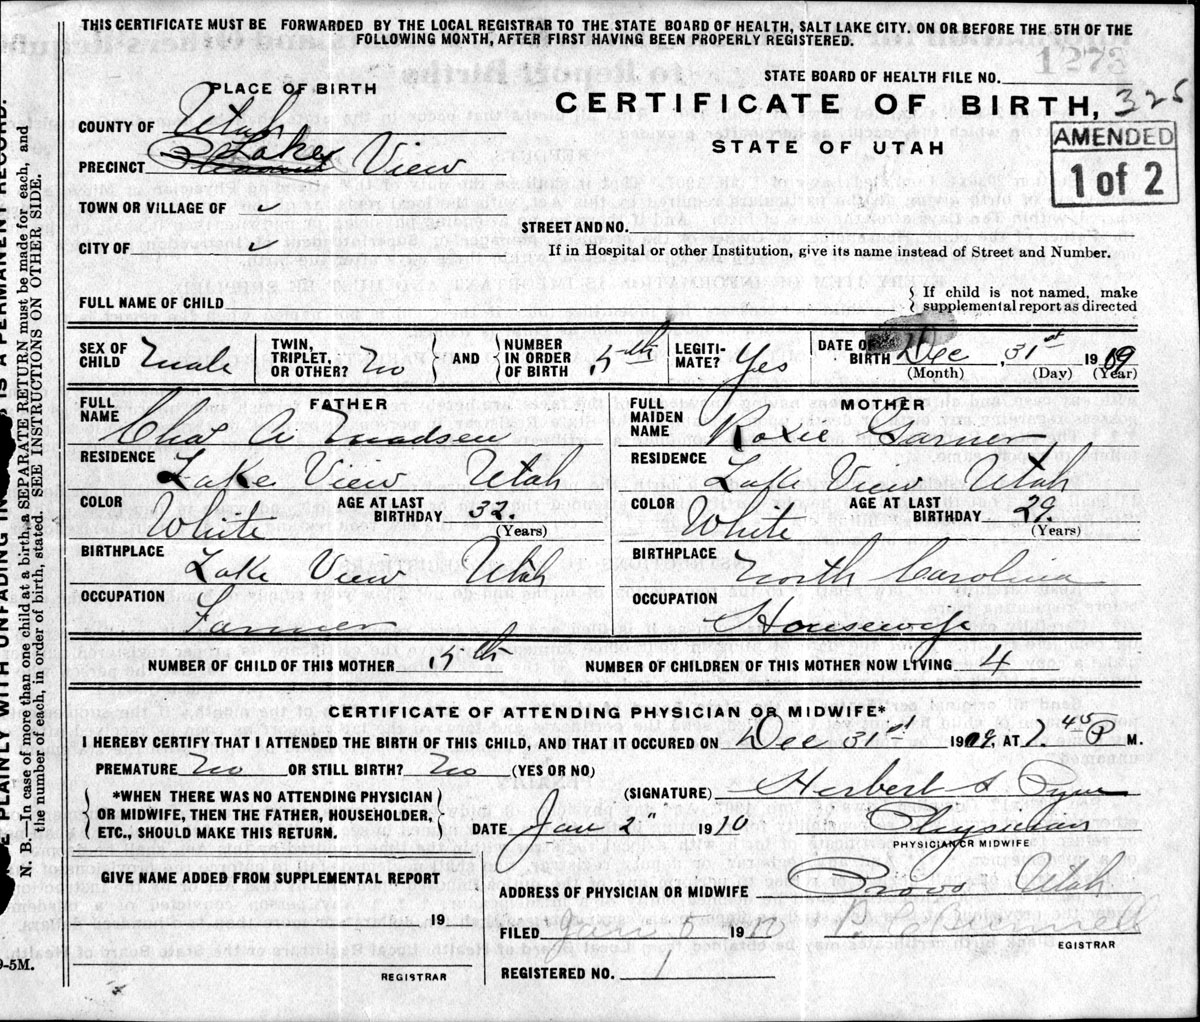 THIS CERTIFICATE MUST BE FORWARDED BY THE LOCAL REGISTRAR TO THE STATE BOARD OF HEALTH, SALT LAKE CITY. ON OR BEFORE THE 5TH OF THE
FOLLOWING MONTH, AFTER FIRST HAVING BEEN PROPERLY REGISTERED.
STATE BOARD OF HEALTH FILE NO.
1273
PLACE OF BIRTH
CERTIFICATE OF BIRTH, 325
STATE OF UTAH
AMENDED
1 of 2
COUNTY OF Utah
PRECINCT Lake View
TOWN OR VILLAGE OF
STREET AND NO.
CITY OF
If in Hospital or other Institution, give its name instead of Street and Number.
FULL NAME OF CHILD
If child is not named, make
supplemental report as directed
SEX OF CHILD male
TWIN, TRIPLET, OR OTHER? No
AND
NUMBER IN ORDER OF BIRTH 5th
LEGITIMATE? Yes
DATE OF BIRTH Dec 31st 1909
(Month) (Day) (Year)
FATHER
FULL NAME Chas A Madsen
RESIDENCE Lake View Utah
COLOR White
AGE AT LAST BIRTHDAY 32. (Years)
BIRTHPLACE Lake View Utah
OCCUPATION Farmer
MOTHER
FULL MAIDEN NAME Roxie Garner
RESIDENCE Lake View Utah
COLOR White
AGE AT LAST BIRTHDAY 29. (Years)
BIRTHPLACE North Carolina
OCCUPATION Housewife
NUMBER OF CHILD OF THIS MOTHER 5th
NUMBER OF CHILDREN OF THIS MOTHER NOW LIVING 4
CERTIFICATE OF ATTENDING PHYSICIAN OR MIDWIFE*
I HEREBY CERTIFY THAT I ATTENDED THE BIRTH OF THIS CHILD, AND THAT IT OCCURED ON Dec 31st 1909. AT 7.45 P M.
PREMATURE No OR STILL BIRTH? No (YES OR NO)
*WHEN THERE WAS NO ATTENDING PHYSICIAN
OR MIDWIFE, THEN THE FATHER, HOUSEHOLDER,
ETC., SHOULD MAKE THIS RETURN.
(SIGNATURE) Herbert S Pyne
DATE Jan 2" 1910
Physician
PHYSICIAN OR MIDWIFE
GIVE NAME ADDED FROM SUPPLEMENTAL REPORT
19
REGISTRAR
ADDRESS OF PHYSICIAN OR MIDWIFE Provo Utah
FILED Jan 5 1910
EGISTRAR
REGISTERED NO. 1
9-5M.
N. B.—In case of more than one child at a birth, a SEPARATE RETURN must be made for each, and
the number of each, in order of birth, stated. SEE INSTRUCTIONS ON OTHER SIDE.
PLAINLY WITH UNFADING IN
IS A PERMANENT RECORD.